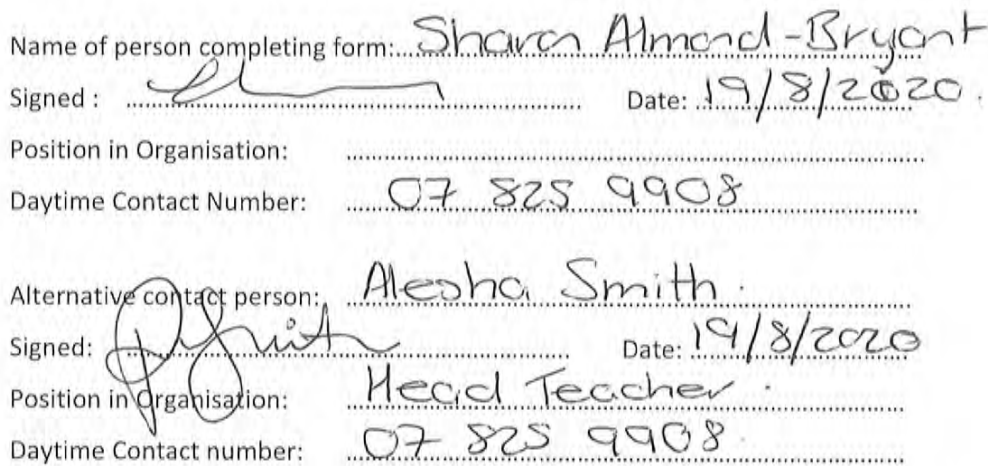 Name of person completing form: Sharon Almond-Bryant
Signed : Date: 19/8/2020.
Position in Organisation:
Daytime Contact Number: 07 825 9908
Alternative contact person: Alesha Smith.
Signed: A Smith Date: 19/8/2020
Position in Organisation: Head Teacher.
Daytime Contact number: 07 825 9908.